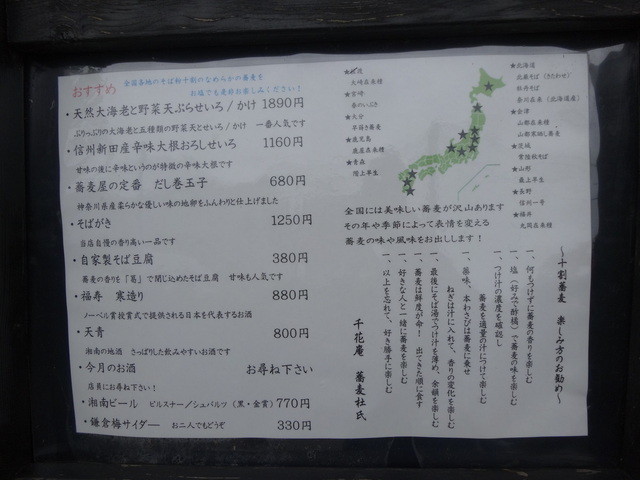 おすすめ
全国各地のそば粉十割のなめらかの蕎麦を
お塩でも是非お楽しみください!
・天然大海老と野菜天ぷらせいろ/かけ 1890円
ぷりっぷりの大海老と五種類の野菜天とせいろ/かけ 一番人気です
・信州新田産辛味大根おろしせいろ 1160円
甘味の後に辛味というのが特徴の辛味大根です
・蕎麦屋の定番 だし巻玉子 680円
神奈川県産柔らかな優しい味の地卵をふんわりと仕上げました
・そばがき 1250円
当店自慢の香り高い一品です
・自家製そば豆腐 380円
蕎麦の香りを「葛」で閉じ込めたそば豆腐 甘味も人気です
・福寿 寒造り 880円
ノーベル賞授賞式で提供される日本を代表するお酒
・天青 800円
湘南の地酒 さっぱりした飲みやすいお酒です
・今月のお酒 お尋ね下さい
店員にお尋ね下さい!
・湘南ビール ピルスナー/シュバルツ(黒・金賞)770円
・鎌倉梅サイダー お二人でもどうぞ 330円
久崎在来種
★宮崎
春のいぶき
★大分
早蒔き蕎麦
★鹿児島
鹿屋在来種
★青森
階上早生
★北海道
北義そば(きたわせ)
牡丹そば
奈川在来(北海道産)
★会津
山都在来種
山都寒晒し蕎麦
★茨城
常陸秋そば
★山形
最上早生
★長野
信州一号
★福井
丸岡在来種
全国には美味しい蕎麦が沢山あります
その年や季節によって表情を変える
蕎麦の味や風味をお出しします!
~十割蕎麦 楽しみ方のお勧め~
一、何もつけずに蕎麦の香りを楽しむ
一、塩(好みで酢橘)で蕎麦の味を楽しむ
一、つけ汁の濃度を確認し
蕎麦を適量の汁につけて楽しむ
一、薬味、本わさびは蕎麦に乗せ
ねぎは汁に入れて、香りの変化を楽しむ
一、最後にそば湯でつけ汁を薄め、余韻を楽しむ
一、蕎麦は鮮度が命!出てきた順に食す
一、好きな人と一緒に蕎麦を楽しむ
一、以上を忘れて、好き勝手に楽しむ
千花庵 蕎麦杜氏